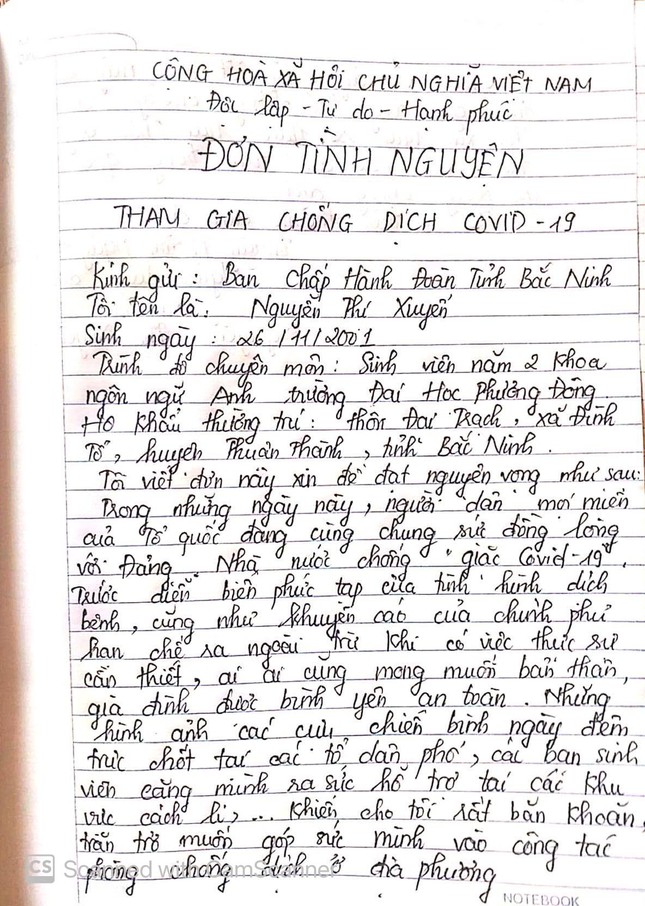 CỘNG HOÀ XÃ HỘI CHỦ NGHĨA VIỆT NAM
Độc lập - Tự do - Hạnh phúc
ĐƠN TÌNH NGUYỆN
THAM GIA CHỐNG DỊCH COVID - 19
Kính gửi : Ban Chấp Hành Đoàn Tỉnh Bắc Ninh
Tôi tên là : Nguyễn Thị Xuyến
Sinh ngày : 26 / 11 / 2001
Trình độ chuyên môn : Sinh viên năm 2 khoa
ngôn ngữ Anh trường Đại Học Phương Đông.
Hộ khẩu thường trú : thôn Đại Trạch, xã Đình
Tổ, huyện Thuận Thành, tỉnh Bắc Ninh.
Tôi viết đơn này xin đề đạt nguyện vọng như sau:
Trong những ngày này, người dân mọi miền
của Tổ quốc đang cùng chung sức đồng lòng
với Đảng, Nhà nước chống "giặc Covid-19".
Trước diễn biến phức tạp của tình hình dịch
bệnh, cũng như khuyến cáo của chính phủ
hạn chế ra ngoài trừ khi có việc thực sự
cần thiết, ai ai cũng mong muốn bản thân,
gia đình được bình yên an toàn. Nhưng
hình ảnh các cựu chiến binh ngày đêm
trực chốt tại các tổ dân phố, các bạn sinh
viên căng mình ra sức hỗ trợ tại các khu
vực cách li, ... khiến cho tôi rất băn khoăn,
trăn trở muốn góp sức mình vào công tác
phòng chống dịch ở địa phương
CS Scanned with CamScanner
NOTEBOOK